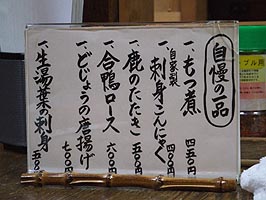 自慢の一品
一、もつ煮 四五〇
自家製
一、刺身こんにゃく 四〇〇
一、鹿のたたき 五〇〇
一、合鴨ロース 六〇〇
一、どじょうの唐揚げ 七〇〇
一、生湯葉の刺身 五〇
ブル用